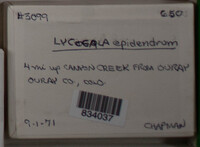 #5099 650
LYCOGALA epidendrum
4 mi up CANYON CREEK FROM OURAY
OURAY CO, COLO
834037
9-1-71 CHAPMAN